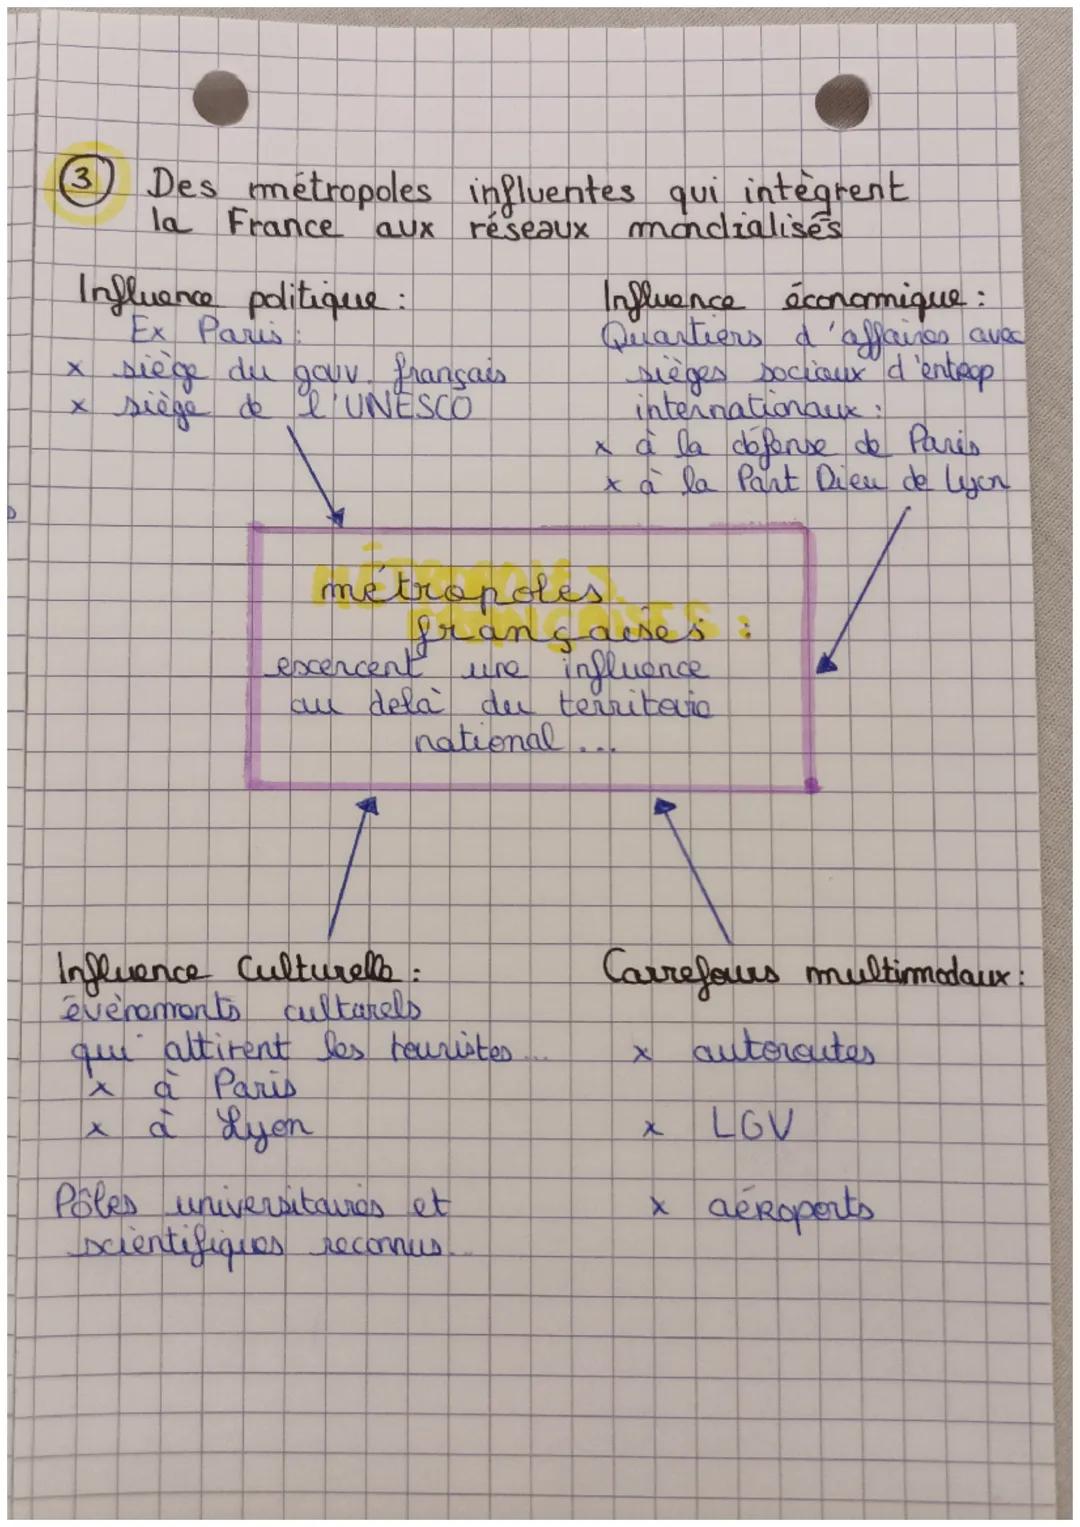 3 Des métropoles influentes qui intègrent
la France aux réseaux mondialisés
Influence politique :
Ex Paris :
x siège du gouv. français
x siège de l'UNESCO
Influence économique :
Quartiers d'affaires avec
sièges sociaux d'entrep
internationaux :
x à la défense de Paris
x à la Part Dieu de Lyon
métropoles
françaises :
excercent une influence
au delà du territoire
national ...
Influence Culturelle :
évènements culturels
qui attirent les touristes ...
x à Paris
x à Lyon
Pôles universitaires et
scientifiques reconnus...
Carrefours multimodaux :
x autoroutes
x LGV
x aéroports